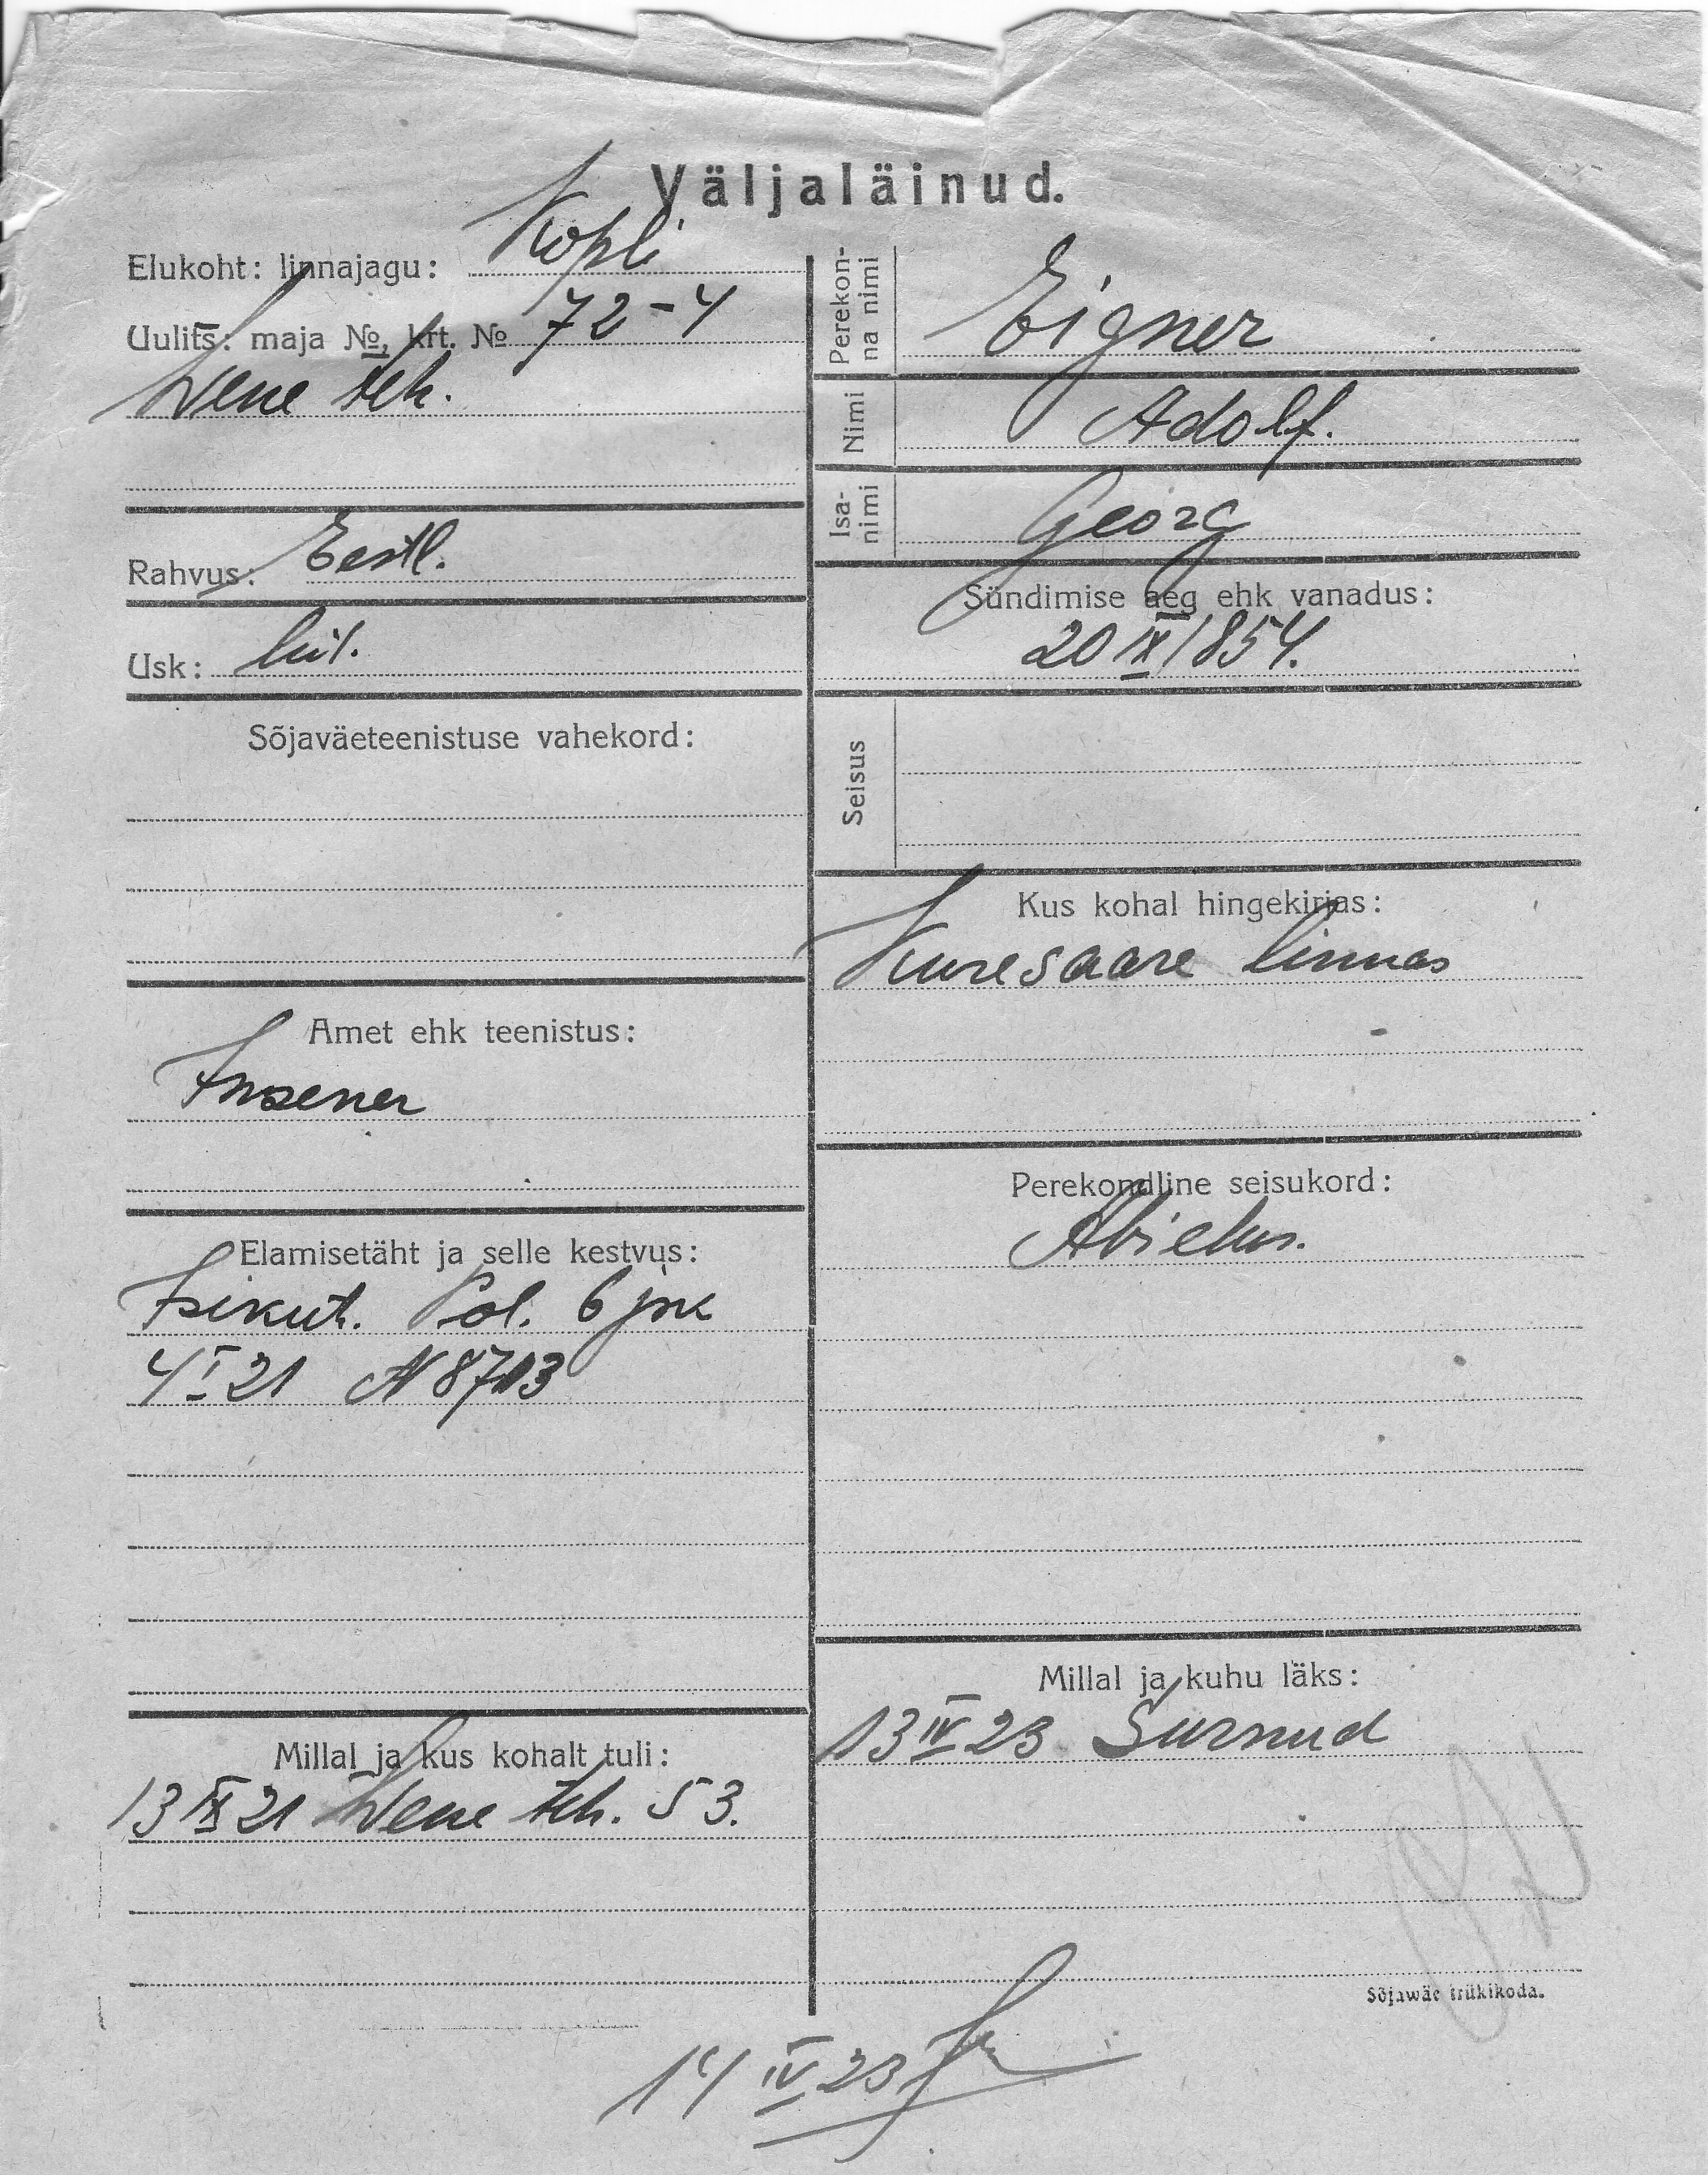 Väljaläinud.
Elukoht: linnajagu: Kopli
Uulits: maja №, krt. № 72-4
Wene teh.
Rahvus: Eestl.
Usk: lut.
Sõjaväeteenistuse vahekord:
Amet ehk teenistus:
Insener
Elamisetäht ja selle kestvus:
Isikut. Pol. 6 jsk
4 I 21 N 8713
Millal ja kus kohalt tuli:
13 IX 21 Wene teh. 53.
Perekon-
na nimi
Eigner
Nimi
Adolf.
Isa-
nimi
Georg
Sündimise aeg ehk vanadus:
20 IX 1854.
Seisus
Kus kohal hingekirjas:
Kuresaare linnas
Perekondline seisukord:
Abielus.
Millal ja kuhu läks:
13 IV 23 Surnud
Sõjawäe trükikoda.
14 IV 23